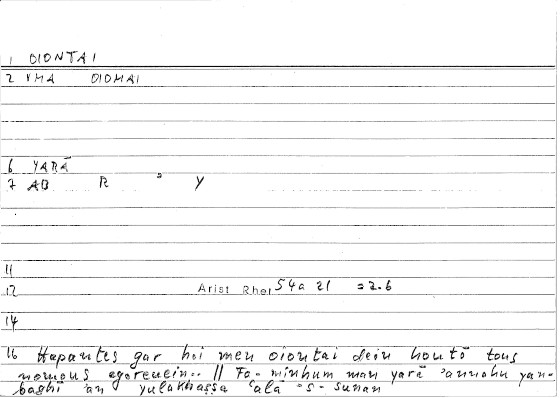 1 OIONTAI
2 VMA OIOMAI
6 YARĀ
7 AB R ʾ Y
11
12 Arist Rhet 54a 21 = 2.6
14
16 Hapantes gar hoi men oiontai dein houtō tous
nomous agoreuein.. // Fa-minhum man yarā ʾannahu yan-
baghī ʾan yulakhaṣṣa ʿalā -s-sunan